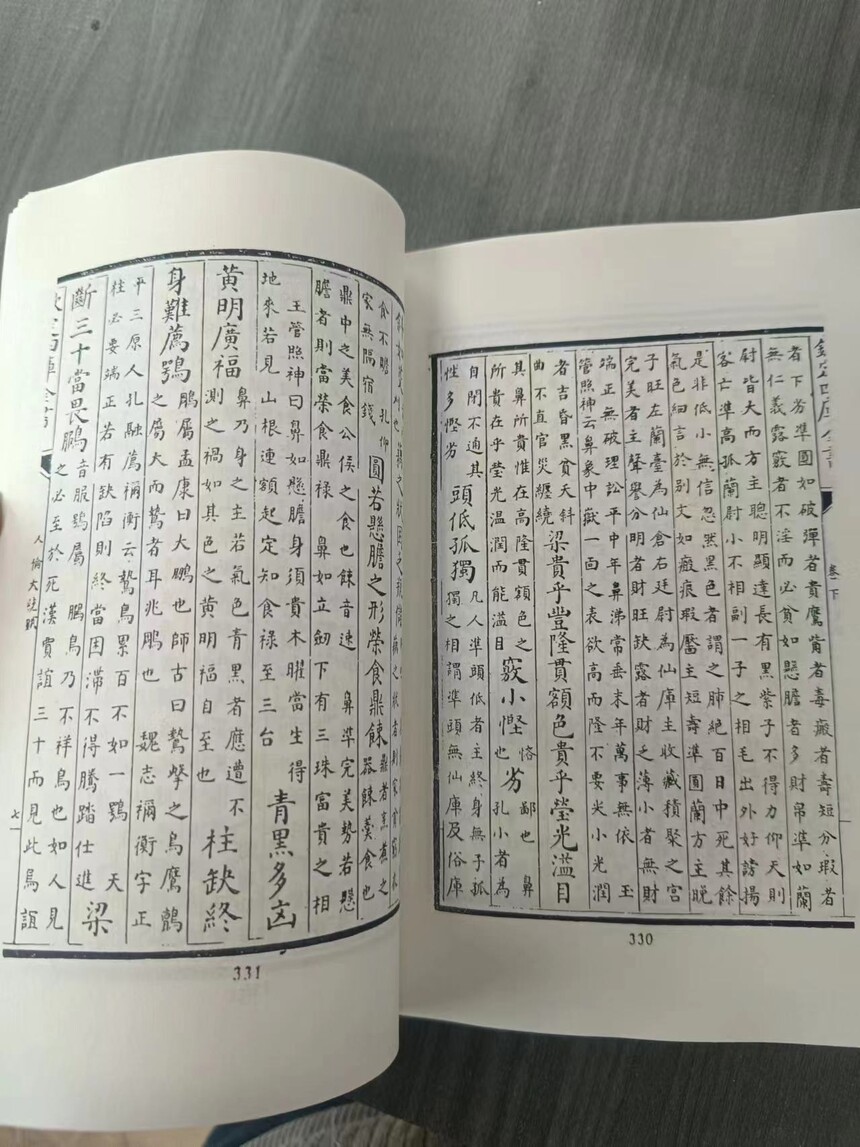 卷下
者下劣準圓如破彈者貴鷹觜者毒瘢者壽短分瑕者
無仁義露竅者不淫而必貧如懸膽者多財吊準如蘭
尉皆大而方主聰明顯達長有黑紫子不得力仰天則
客亡準高孤蘭尉小不相副一子之相毛出外好謗揚
是非低小無信忽然黑色者謂之肺絕百日中死其餘
氣色細言於別文如瘢痕瑕黶主短壽準圓蘭方主晚
子旺左蘭臺為仙倉右廷尉為仙庫主收藏積聚之宮
完美者主聲譽分明者財旺缺露者財之薄小者無財
端正無破理訟平中年鼻涕常垂末年萬事無依 玉
管照神云鼻象中嶽一面之表欲高而隆不要尖小光潤
者吉昏黑貧夭斜
曲不直官災纏繞
梁貴乎豐隆貫額色貴乎瑩光溢目
其鼻所貴惟在高隆貫額色之
所貴在乎瑩光溫潤而能溢目
竅小慳 恡也 劣 鄙也 鼻孔小者為
自閉不通其
性多慳劣
頭低孤獨
凡人準頭低者主終身無子孤
獨之相謂準頭無仙庫及俗庫
330
食不贍 孔仰
家無隔宿錢
圓若懸膽之形榮食鼎餗
鼎者烹煮之
器餗羹食也
鼎中之美食公侯之食也餗音速 鼻準完美勢若懸
膽者則當榮食鼎祿 鼻如立劒下有三珠富貴之相
王管照神曰鼻如懸膽身須貴木曜當生得
地來若見山根連額起定知食祿至三台
青黑多凶
黃明廣福
鼻乃身之主若氣色青黑者應遭不
測之禍如其色之黃明福自至也
柱缺終
身難薦鶚
鵰屬孟康曰大鵰也師古曰鷙擊之鳥鷹鷂
之屬大而鷙者耳非鵰也 魏志禰衡字正
平三原人孔融薦禰衡云鷙鳥累百不如一鶚 天
柱必要端正若有缺陷則終當困滯不得騰踏仕進
梁
斷三十當畏鵩
音服鴞屬 鵩鳥乃不祥鳥也如人見
之必至於死漢賈誼三十而見此鳥誼
人倫大統賦
七
331